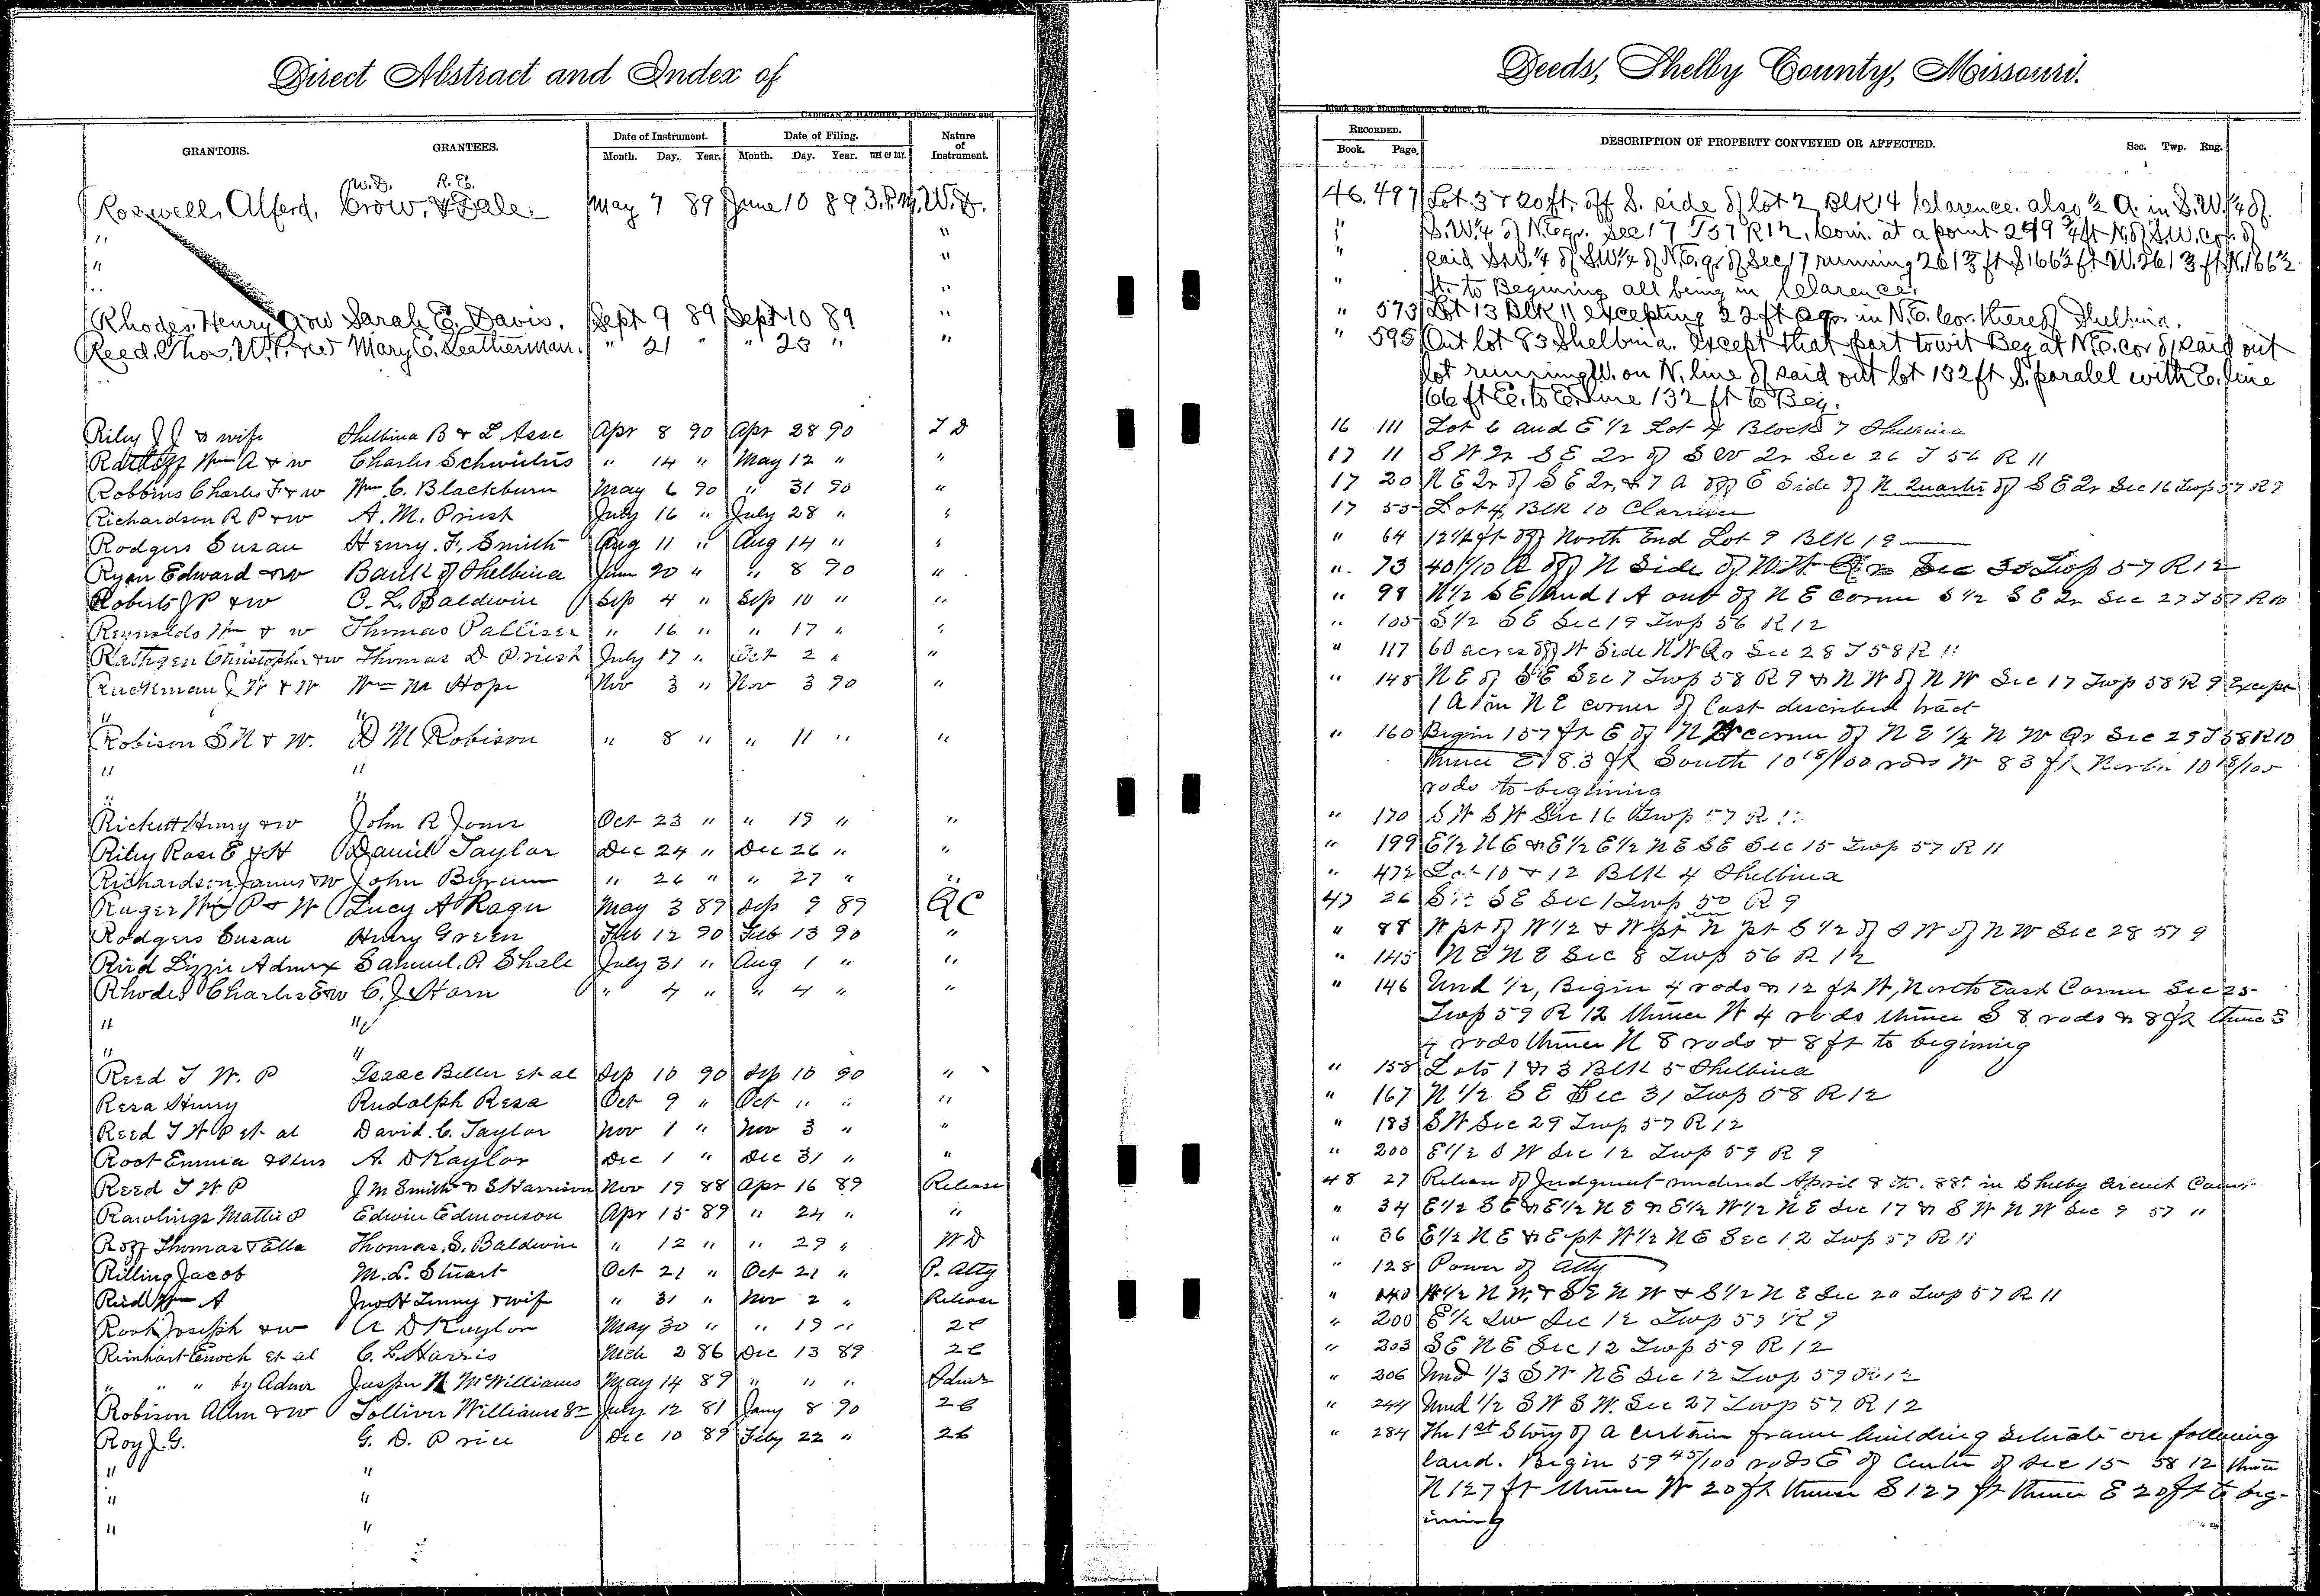 Direct Abstract and Index of
Deeds, Shelby County, Missouri.
CADOGAN & HATCHER, Printers, Binders and
Blank Book Manufacturers, Quincy, Ill.
GRANTORS. GRANTEES. Date of Instrument. Date of Filing. Nature of Instrument. RECORDED. DESCRIPTION OF PROPERTY CONVEYED OR AFFECTED. Sec. Twp. Rng.
Month. Day. Year. Month. Day. Year. TIME OF DAY. Book. Page.
W.D. R.Es.
Roswell, Alferd, Crow, & Bale. May 7 89 June 10 89 3.P.M. W.D. 46. 497 Lot. 3 & 20 ft. off S. side of lot 2 Blk 14 Clarence. also ½ A. in S.W. ¼ of
" " " S.W ¼ of N.E qr. Sec 17 T57 R12, Com. at a point 299 ¾ ft N. of S.W. cor. of
" " " said S.W. ¼ of S.W ¼ of N.E. qr of Sec 17 running 261 ft S 166 ½ ft W. 261 ft N. 166 ½
" " " ft. to Begining all being in Clarence.
Rhodes, Henry & w Sarah E. Davis. Sept 9 89 Sept 10 89 " " 573 Lot 13 Blk 11 excepting 22 ft sqr in N.E. Cor. thereof Shelbina.
Reed. Thos. W.P. & w Mary E. Leatherman. " 21 " " 23 " " " 595 Out lot 83 Shelbina. except that part towit Beg at N.E. cor of said out
lot running W. on N. line of said out lot 132 ft S. paralel with E. line
66 ft E. to E. line 132 ft to Beg.
Riley J J & wife Shelbina B & L Asso Apr 8 90 Apr 28 90 T D 16 111 Lot 6 and E 1/2 Lot 4 Block 7 Shelbina
Ratliff Wm A & w Charles Schwieters " 14 " May 12 " " 17 11 S W Qr S E Qr of S W Qr Sec 26 T 56 R 11
Robbins Charles F & w Wm C. Blackburn May 6 90 " 31 90 " 17 20 N E Qr of S E Qr, & 7 A off E Side of N Quarter of S E Qr Sec 16 Twp 57 R 9
Richardson R P & w A. M. Priest July 16 " July 28 " " 17 55 Lot 4 Blk 10 Clarence
Rodgers Susan Henry. F. Smith Aug 11 " Aug 14 " " " 64 12 1/2 ft off North End Lot 9 Blk 19
Ryan Edward & w Bank of Shelbina Jan 20 " " 8 90 " " 73 40 1/10 A off N Side of N W Qr Sec 30 Twp 57 R 12
Roberts J P & w C. L. Baldwin Sep 4 " Sep 10 " " " 98 N 1/2 S E and 1 A out of N E corner S 1/2 S E Qr Sec 27 T 57 R 10
Reynolds Wm & w Thomas Palliser " 16 " " 17 " " " 105 S 1/2 S E Sec 19 Twp 56 R 12
Rathgen Christopher & w Thomas D Priest July 17 " Oct 2 " " " 117 60 acres off W Side N W Qr Sec 28 T 58 R 11
Ruckman J W & W Wm M Hope Nov 3 " Nov 3 90 " " 148 N E of S E Sec 7 Twp 58 R 9 & N W of N W Sec 17 Twp 58 R 9 Except
" " 1 A in N E corner of last described tract
Robison S N & W. D M Robison " 8 " " 11 " " " 160 Begin 157 ft E of N W corner of N E 1/4 N W Qr Sec 29 T 58 R 10
" " thence E 83 ft South 10 18/100 rods W 83 ft North 10 18/100
" " rods to begining
Rickett Henry & w John R Jones Oct 23 " " 19 " " " 170 S W S W Sec 16 Twp 57 R
Riley Rose E & H Daniel Taylor Dec 24 " Dec 26 " " " 199 E 1/2 N E & E 1/2 E 1/2 N E S E Sec 15 Twp 57 R 11
Richardson James & w John Byrum " 26 " " 27 " " " 472 Lot 10 & 12 Blk 4 Shelbina
Ruger Wm P & W Lucy A Rager May 3 89 Sep 9 89 Q C 47 26 S E Sec 1 Twp 50 R 9
Rodgers Susan Henry Green Feb 12 90 Feb 13 90 " " 88 W pt of W 1/2 & W pt N pt E 1/2 of S W of N W Sec 28 57 9
Reid Lizzie Admrx Samuel. R Shale July 31 " Aug 1 " " " 145 N E N E Sec 8 Twp 56 R 12
Rhodes Charles E & w C. J Horn " 4 " " 4 " " " 146 Und 1/2, Begin 4 rods & 12 ft W, North East Corner Sec 25
" " Twp 59 R 12 thence W 4 rods thence S 8 rods & 8 ft thence E
" " 4 rods thence N 8 rods & 8 ft to begining
Reed T W. P Isaac Beller et al Sep 10 90 Sep 10 90 " " 158 Lots 1 & 3 Blk 5 Shelbina
Resa Henry Rudolph Resa Oct 9 " Oct " " " " 167 N 1/2 S E Sec 31 Twp 58 R 12
Reed T W P et al David. C. Taylor Nov 1 " Nov 3 " " " 183 S W Sec 29 Twp 57 R 12
Root Emma & Hus A. D Kaylor Dec 1 " Dec 31 " " " 200 E 1/2 S W Sec 12 Twp 59 R 9
Reed T W P J M Smith & S Harrison Nov 19 88 Apr 16 89 Release 48 27 Release of Judgment rendered April 8th. 88 in Shelby Circuit Court
Rawlings Mattie P Edwin Edmonson Apr 15 89 " 24 " " " 34 E 1/2 S E & E 1/2 N E & E 1/2 W 1/2 N E Sec 17 & S W N W Sec 9 57 "
Roff Thomas & Ella Thomas. S. Baldwin " 12 " " 29 " W D " 36 E 1/2 N E & E pt W 1/2 N E Sec 12 Twp 57 R 11
Rilling Jacob M. L. Stuart Oct 21 " Oct 21 " P. Atty " 128 Power of Atty
Reid Wm A Jno H Tenny & wife " 31 " Nov 2 " Release " 140 W 1/2 N W. & S E N W & S 1/2 N E Sec 20 Twp 57 R 11
Root Joseph & w A D Kaylor May 30 " " 19 " 2C " 200 E 1/2 S W Sec 12 Twp 59 R 9
Rinhart Enoch et al C. L. Harris Mch 2 86 Dec 13 89 2C " 203 S E N E Sec 12 Twp 59 R 12
" " " by Admr Jasper N McWilliams May 14 89 " " " Admr " 206 Und 1/3 S W N E Sec 12 Twp 59 R 12
Robison Allen & w Tolliver Williams Sr July 12 81 Jany 8 90 2C " 244 Und 1/2 S W S W. Sec 27 Twp 57 R 12
Roy J. G. G. D. Price Dec 10 89 Feby 22 " 2C " 284 The 1st Story of a certain frame building situate on following
" " land. Begin 59 45/100 rods E of Center of Sec 15 58 12 thence
" " N 127 ft thence W 20 ft thence S 127 ft thence E 20 ft to beg-
" " inning